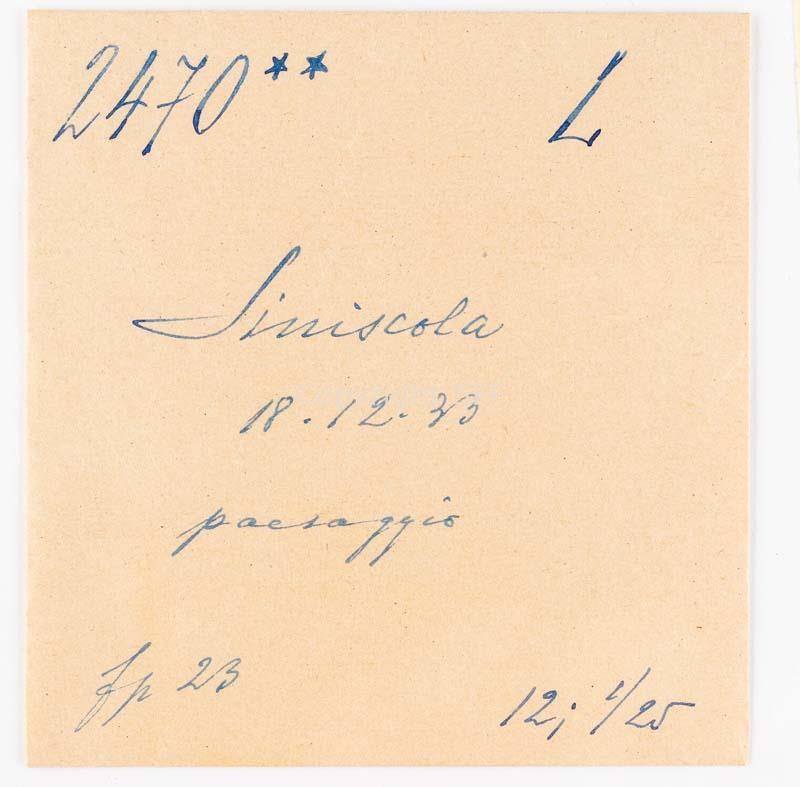 2470** L
Siniscola
18.12.33
paesaggio
fp 23
12; 1/25